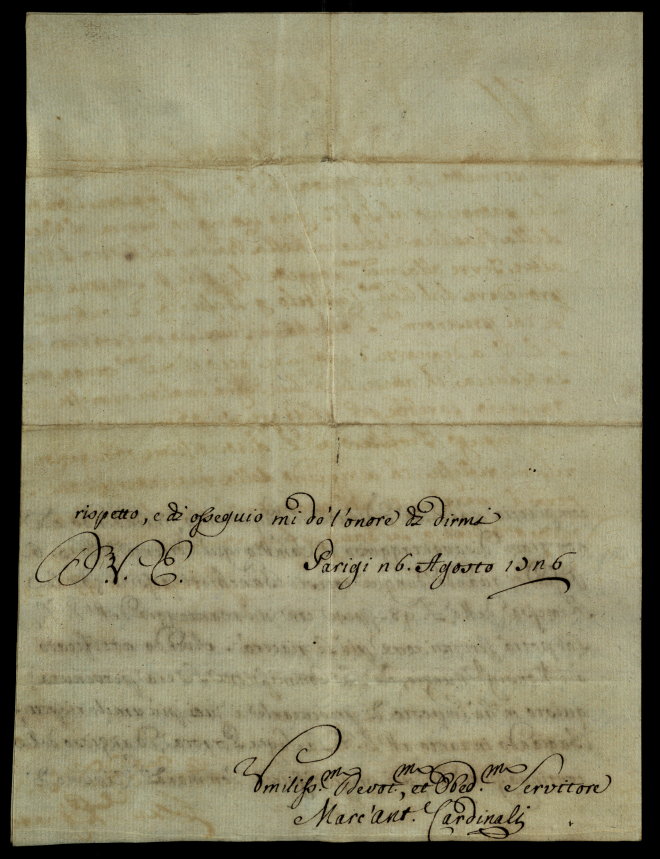 rispetto, e di ossequio mi dò l'onore di dirmi
D. V. E. Parigi 26. Agosto 1726
Umiliss.mo Devot.mo, et Obed.mo Servitore
Marc'Ant. Cardinali